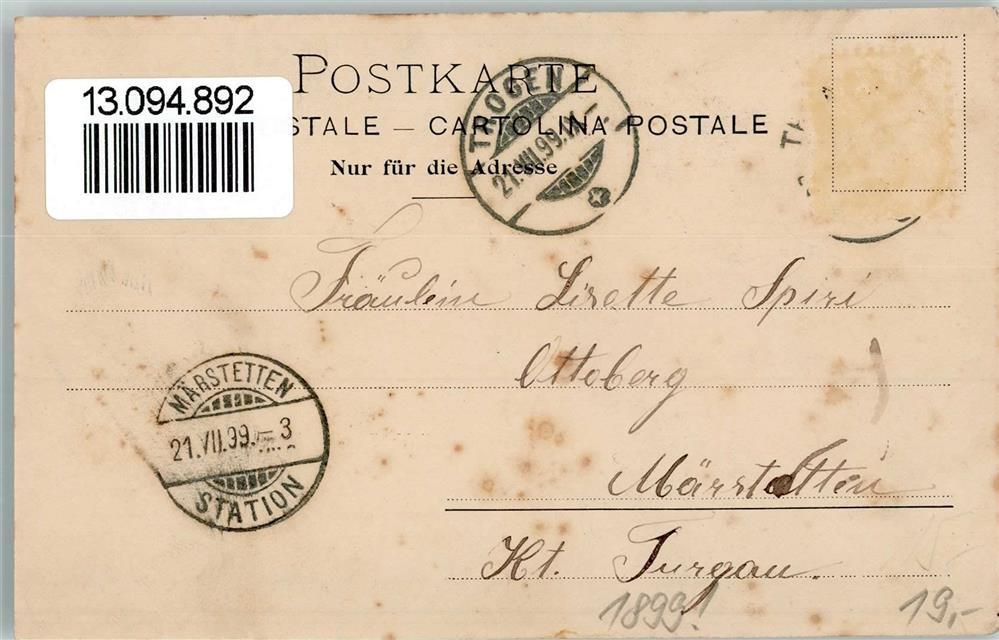 13.094.892
POSTKARTE
STALE — CARTOLINA POSTALE
Nur für die Adresse
TROGEN
21.VII.99.
Fräulein Lisette Spiri
Ottoberg
Märstetten
Kt. Turgau.
MÄRSTETTEN
21.VII.99.–3
STATION
1899!
19,-